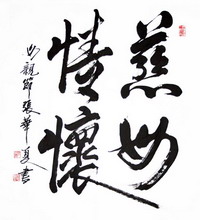 慈母
情懷
母親節張華夏書